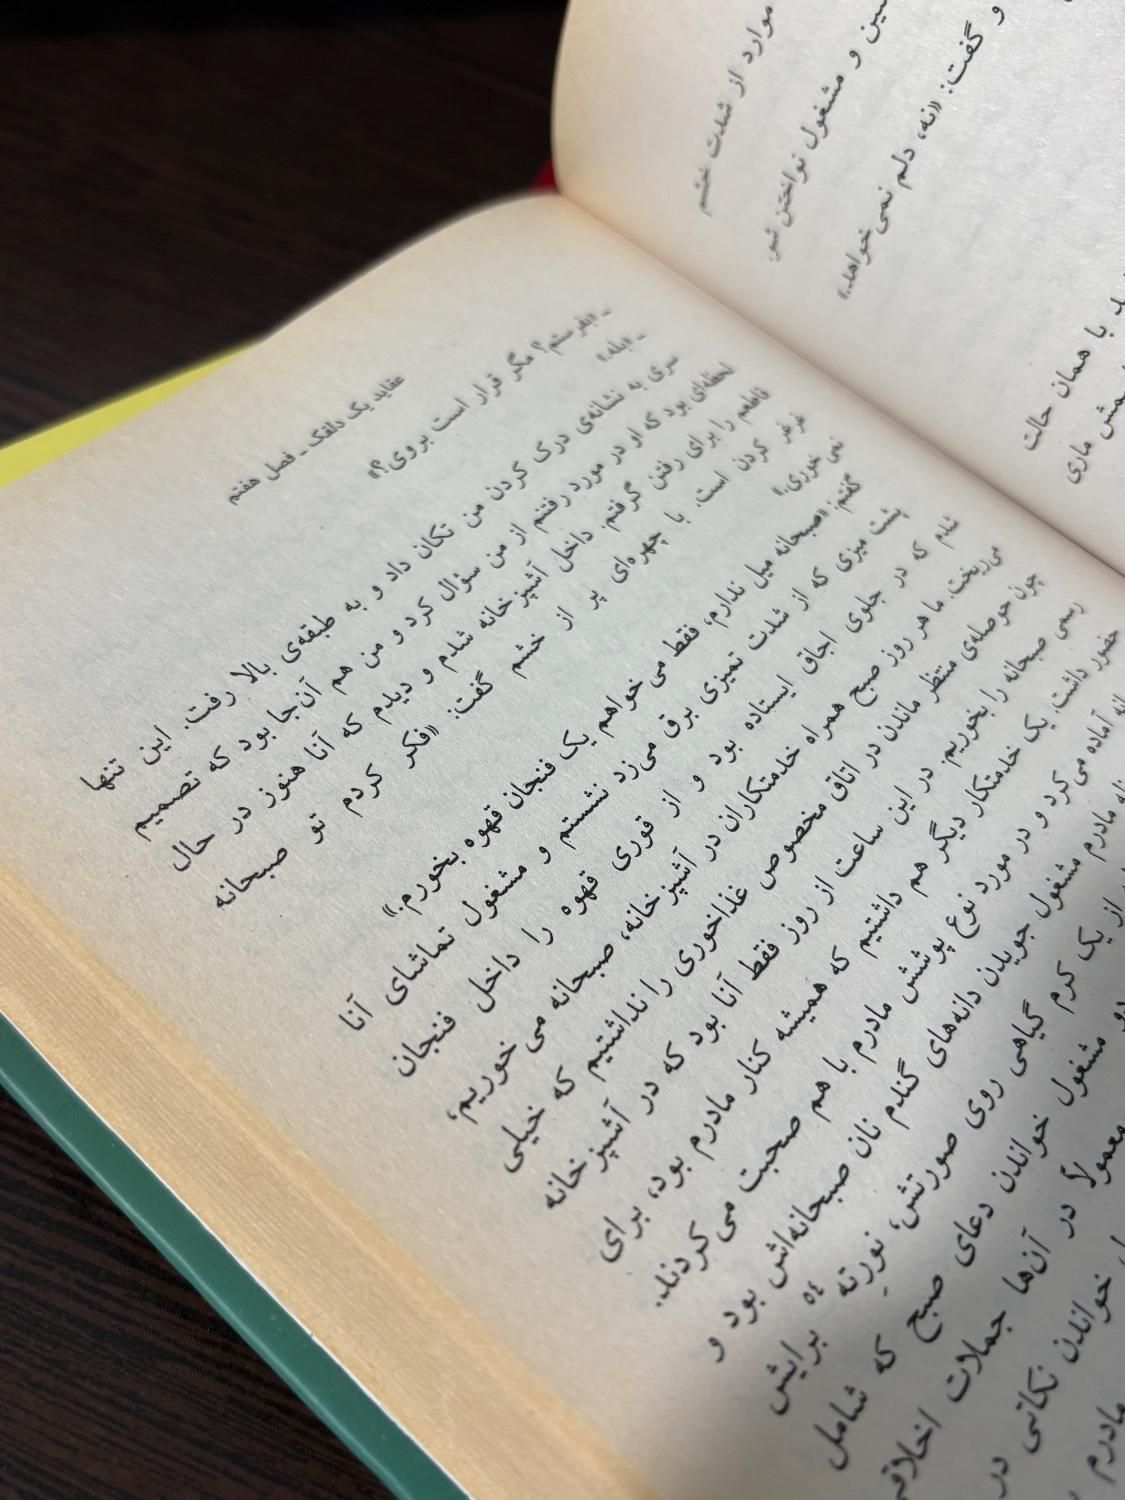 عقاید یک دلقک ـ فصل هفتم
ـ «بفرستم؟ مگر قرار است بروی؟»
ـ «بله.»
سری به نشانه‌ی درک کردن من تکان داد و به طبقه‌ی بالا رفت. این تنها
لحظه‌ای بود که او در مورد رفتنم از من سؤال کرد و من هم آن‌جا بود که تصمیم
قاطعم را برای رفتن گرفتم. داخل آشپزخانه شدم و دیدم که آنا هنوز در حال
غرغر کردن است. با چهره‌ای پر از خشم گفت: «فکر کردم تو صبحانه
نمی خوری.»
گفتم: «صبحانه میل ندارم، فقط می خواهم یک فنجان قهوه بخورم.»
پشت میزی که از شدت تمیزی برق می‌زد نشستم و مشغول تماشای آنا
شدم که در جلوی اجاق ایستاده بود و از قوری قهوه را داخل فنجان
می‌ریخت. ما هر روز صبح همراه خدمتکاران در آشپز خانه، صبحانه می خوریم،
چون حوصله‌ی منتظر ماندن در اتاق مخصوص غذاخوری را نداشتیم که خیلی
رسمی صبحانه را بخوریم. در این ساعت از روز فقط آنا بود که در آشپز خانه
حضور داشت. یک خدمتکار دیگر هم داشتیم که همیشه کنار مادرم بود، برای
آماده می‌کرد و در مورد نوع پوشش مادرم با هم صحبت می‌کردند.
مادرم مشغول جویدن دانه‌های گندم نان صبحانه‌اش بود و
از یک کرم گیاهی روی صورتش، نورته ٥٤ برایش
مشغول خواندن دعای صبح که شامل
معمولاً در آن‌ها جملات
خواندن نکاتی در
مادرم
موارد از شدت خشم
و مشغول نواختن
و گفت: «نه، دلم نمی خواهد.»
با همان حالت
ماری